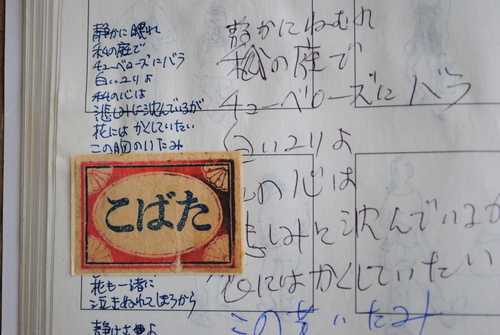 静かに眠れ
私の庭で
チューベローズにバラ
白いユリよ
私の心は
悲しみに沈んでいるが
花にはかくしていたい
この胸のいたみ
こばた
花も一緒に
泣きぬれてしまうから
静けさよ
静かにねむれ
私の庭で
チューベローズにバラ
白いユリよ
の心は
悲しみに沈んでいるが
にはかくしていたい
この苦いたみ